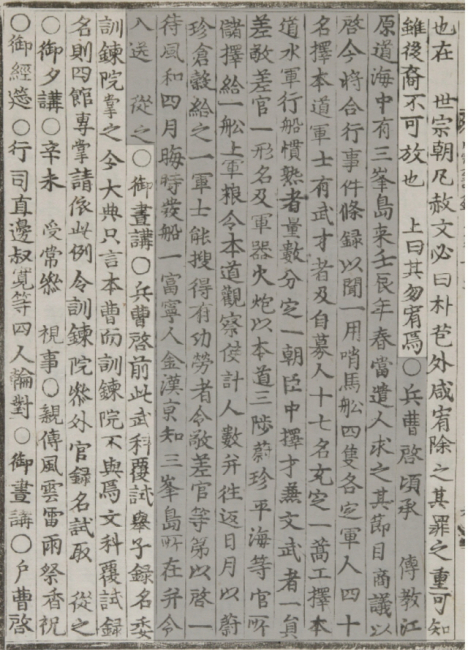 也在　世宗朝凡赦文必曰朴苞外咸宥除之其罪之重可知
雖後裔不可放也　上曰其勿宥焉○兵曹啓頃承　傳教江
原道海中有三峯島来壬辰年春當遣人求之其節目商議以
啓今時合行事件條録以聞一用哨馬舩四隻各定軍人四十
名擇本道軍士有武才者及自募人十七名充定一萬工擇本
道水軍行船慣熟者量數分定一朝臣中擇才兼文武者一員
差敬差官一形名及軍器火炮以本道三陟蔚珍平海等官所
儲擇給一舩上軍粮令本道觀察使計人數并徃返日月以蔚
珍倉穀給之一軍士能搜得有功勞者令敬差官等苐以啓一
待風和四月晦時發船一富寧人金漢京知三峯島所在并令
入送　從之○御晝講○兵曹啓前此武科覆試舉子録名委
訓鍊院掌之今大典只言本曹而訓鍊院不與焉文科覆試録
名則四館專掌請依此例令訓鍊院叅外官録名試取　從之
○御夕講○辛未　受常叅　視事○親傳風雲雷雨祭香祝
○御經筵○行司直邊叔寬等四人論對○御晝講○戶曹啓